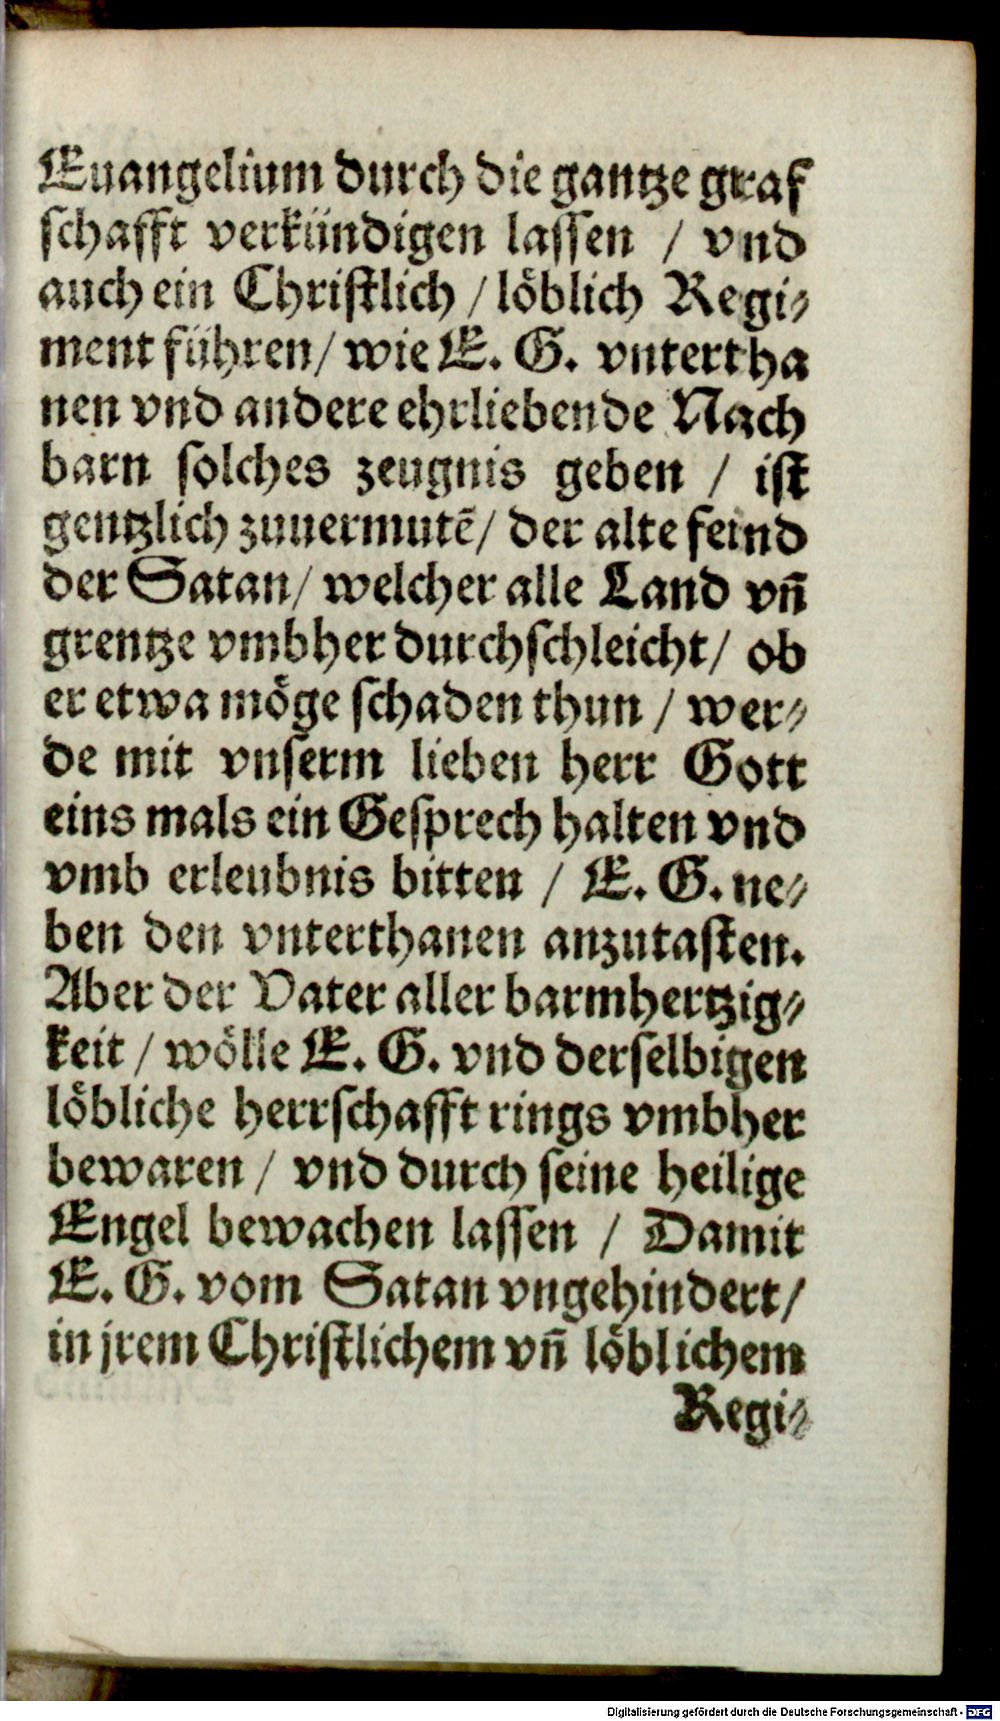 Euangelium durch die gantze graf
schafft verkündigen lassen / vnd
auch ein Christlich / löblich Regi⸗
ment führen/ wie E. G. vntertha
nen vnd andere ehrliebende Nach
barn solches zeugnis geben / ist
gentzlich zuuermutē/ der alte feind
der Satan/ welcher alle Land vñ
grentze vmbher durchschleicht/ ob
er etwa möge schaden thun / wer⸗
de mit vnserm lieben herr Gott
eins mals ein Gesprech halten vnd
vmb erleubnis bitten / E. G. ne⸗
ben den vnterthanen anzutasten.
Aber der Vater aller barmhertzig⸗
keit / wölle E. G. vnd derselbigen
löbliche herrschafft rings vmbher
bewaren / vnd durch seine heilige
Engel bewachen lassen / Damit
E. G. vom Satan vngehindert/
in jrem Christlichem vñ löblichem
Regi⸗
Digitalisierung gefördert durch die Deutsche Forschungsgemeinschaft - DFG